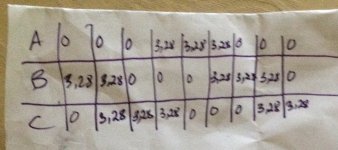 A 0 0 0 3,28 3,28 3,28 0 0 0
B 3,28 3,28 0 0 0 3,28 3,28 3,28 0
C 0 3,28 3,28 3,28 0 0 0 3,28 3,28